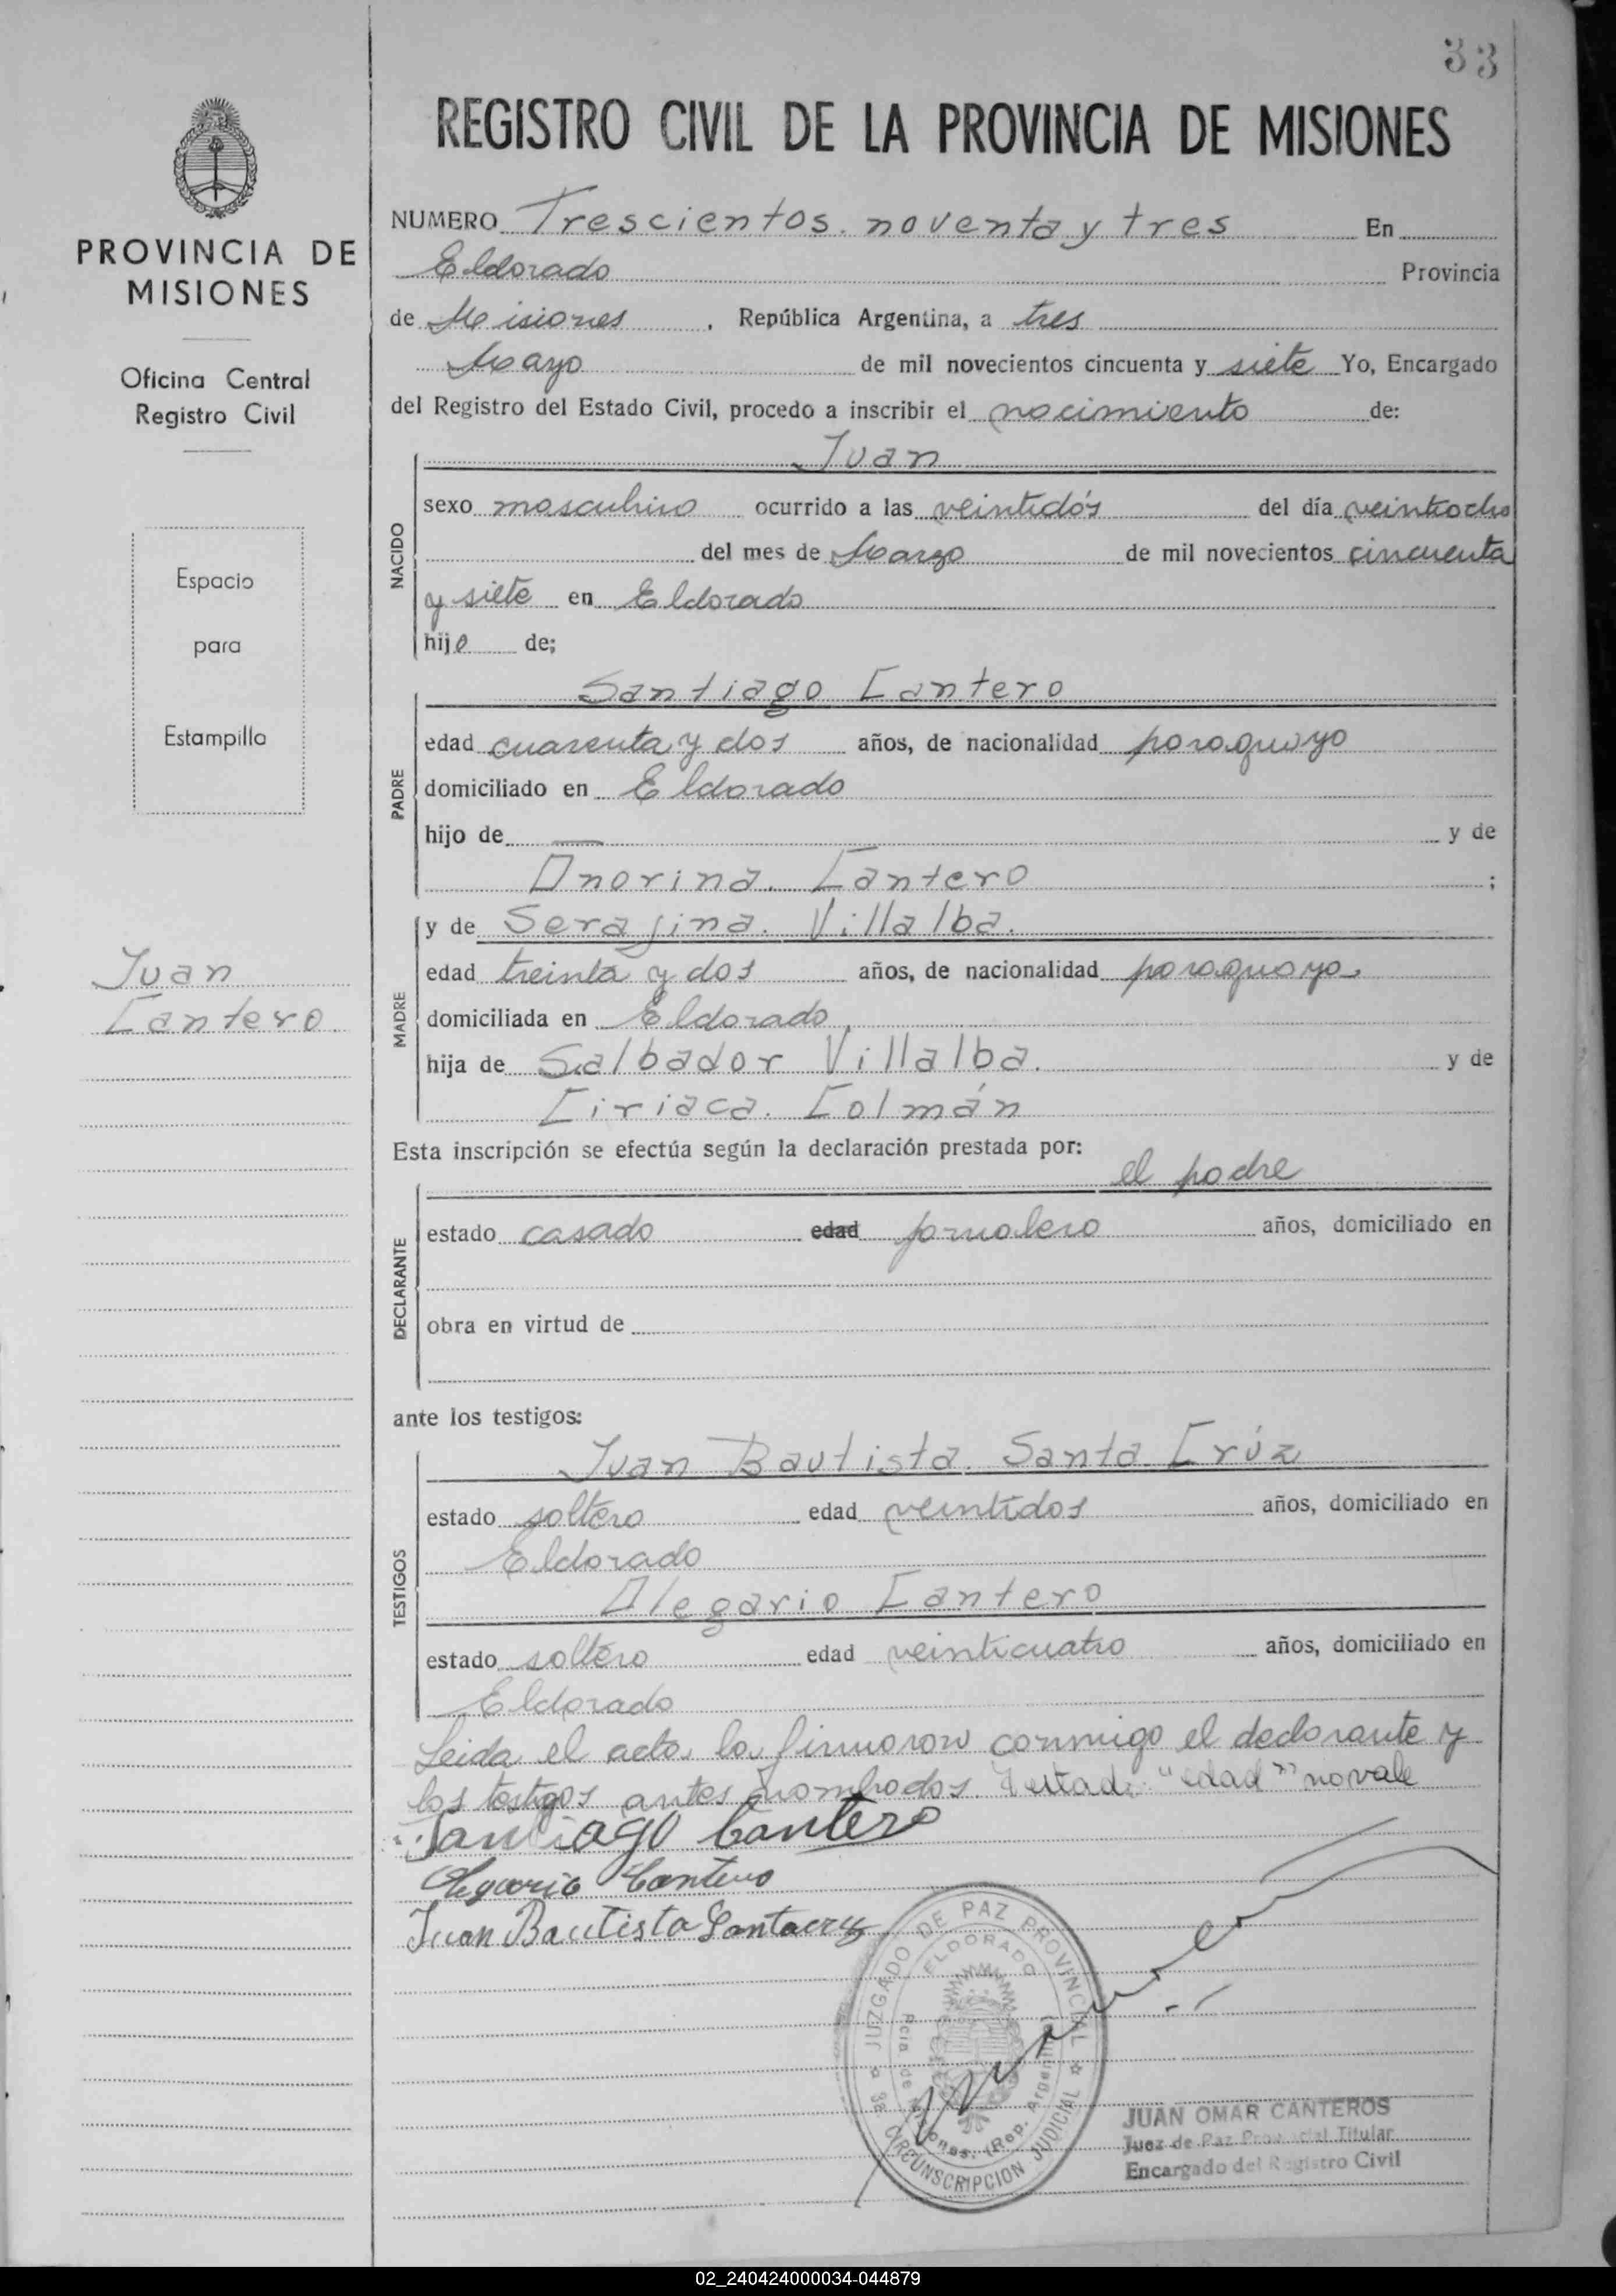 33
REGISTRO CIVIL DE LA PROVINCIA DE MISIONES
PROVINCIA DE
MISIONES
Oficina Central
Registro Civil
Espacio
para
Estampilla
Juan
Cantero
NUMERO Trescientos noventa y tres En
Eldorado Provincia
de Misiones, República Argentina, a tres
Mayo de mil novecientos cincuenta y siete Yo, Encargado
del Registro del Estado Civil, procedo a inscribir el nacimiento de:
NACIDO
Juan
sexo masculino ocurrido a las veintidós del día veintiocho
del mes de Marzo de mil novecientos cincuenta
y siete en Eldorado
hijo de;
PADRE
Santiago Cantero
edad cuarenta y dos años, de nacionalidad paraguayo
domiciliado en Eldorado
hijo de — y de
Onorina Cantero ;
MADRE
y de Serafina Villalba.
edad treinta y dos años, de nacionalidad paraguaya
domiciliada en Eldorado
hija de Salbador Villalba. y de
Ciriaca Colmán
Esta inscripción se efectúa según la declaración prestada por:
DECLARANTE
el padre
estado casado edad jornalero años, domiciliado en
obra en virtud de
ante los testigos:
TESTIGOS
Juan Bautista Santa Crúz
estado soltero edad veintidos años, domiciliado en
Eldorado
Olegario Cantero
estado soltero edad veinticuatro años, domiciliado en
Eldorado
Leida el acta la firmaron conmigo el declarante y
los testigos antes nombrados. Testado: "edad" no vale
Santiago Cantero
Olegario Cantero
Juan Bautista Santacruz
JUZGADO DE PAZ PROVINCIAL
ELDORADO
Pcia de Misiones. (Rep. Argentina)
3a. CIRCUNSCRIPCION JUDICIAL
JUAN OMAR CANTEROS
Juez de Paz Provincial Titular
Encargado del Registro Civil
02_240424000034-044879